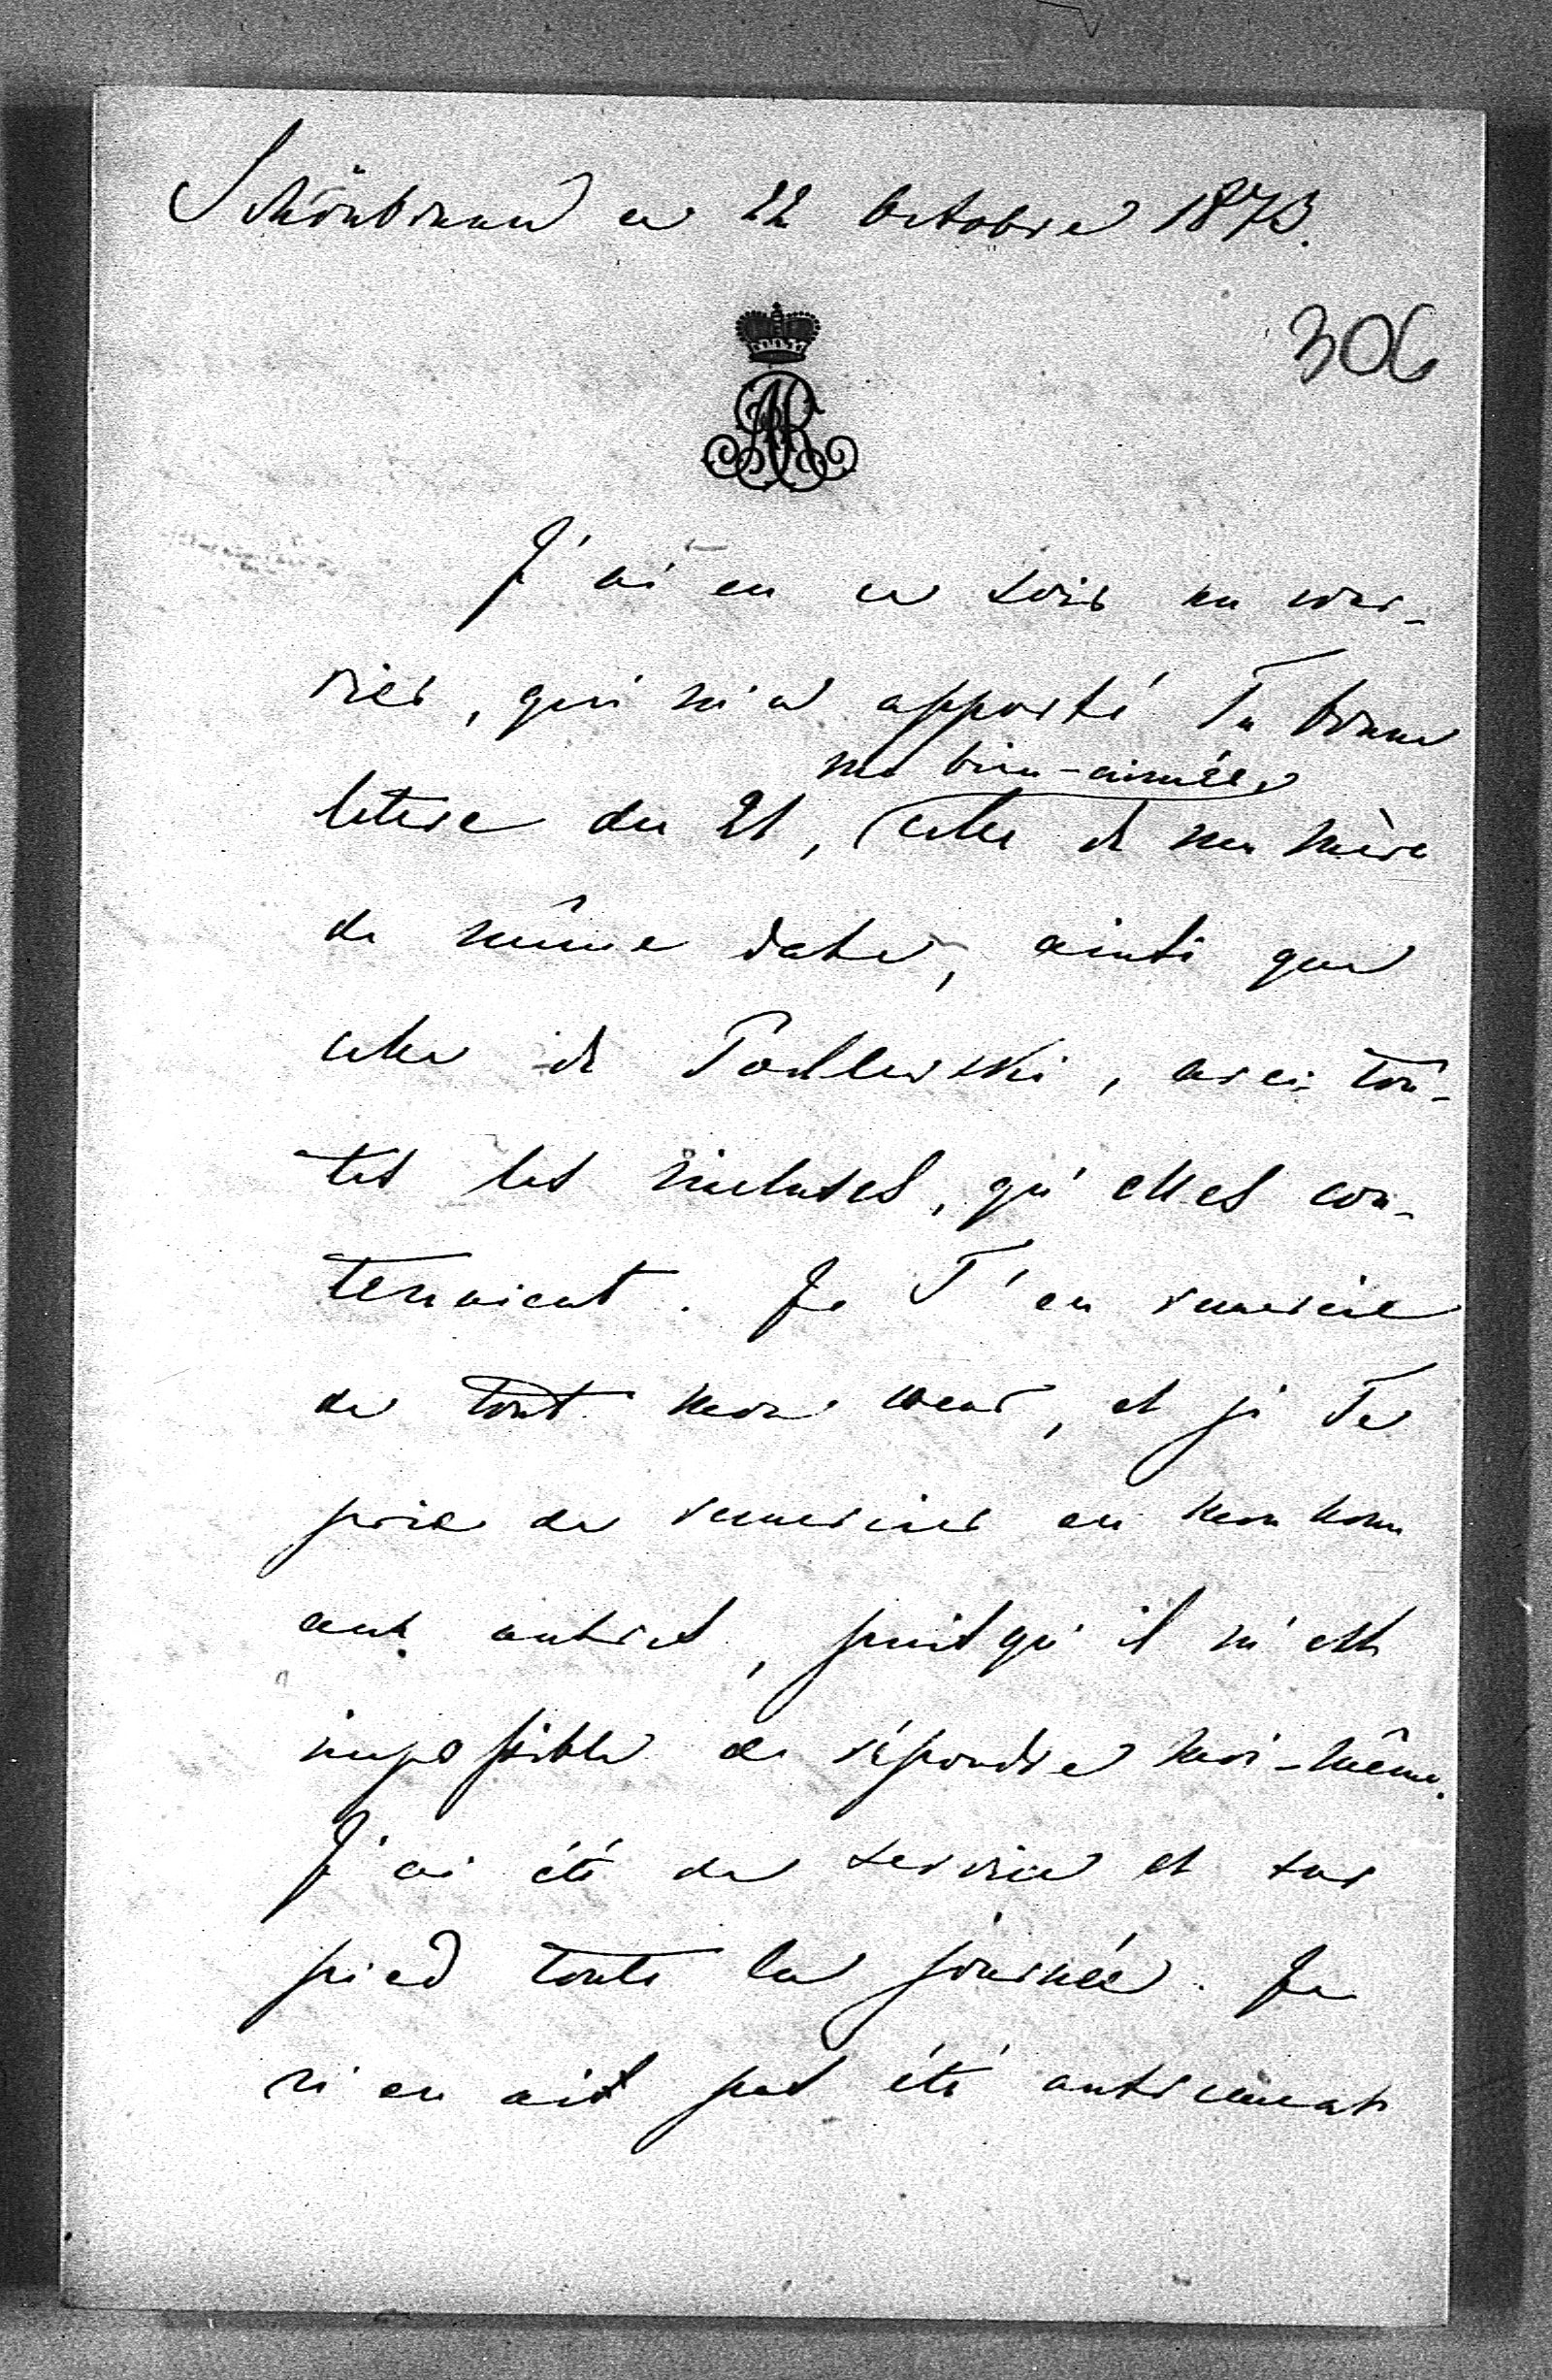 Schönbrunn ce 22 Octobre 1873.
306
AR
J'ai eu ce soir un cour-
rier, qui m'a apporté Ta bonne
ma bien-aimée,
lettre du 21, celle de ma mère
de même date, ainsi que
celle de Podlewski, avec tou-
tes les incluses, qu'elles con-
tenaient. Je T'en remercie
de tout mon coeur, et je Te
prie de remercier en mon nom
aux autres, puisqu'il m'est
impossible de répondre moi-même.
J'ai été de service et sur
pied toute la journée. Je
n'en ais pas été autrement